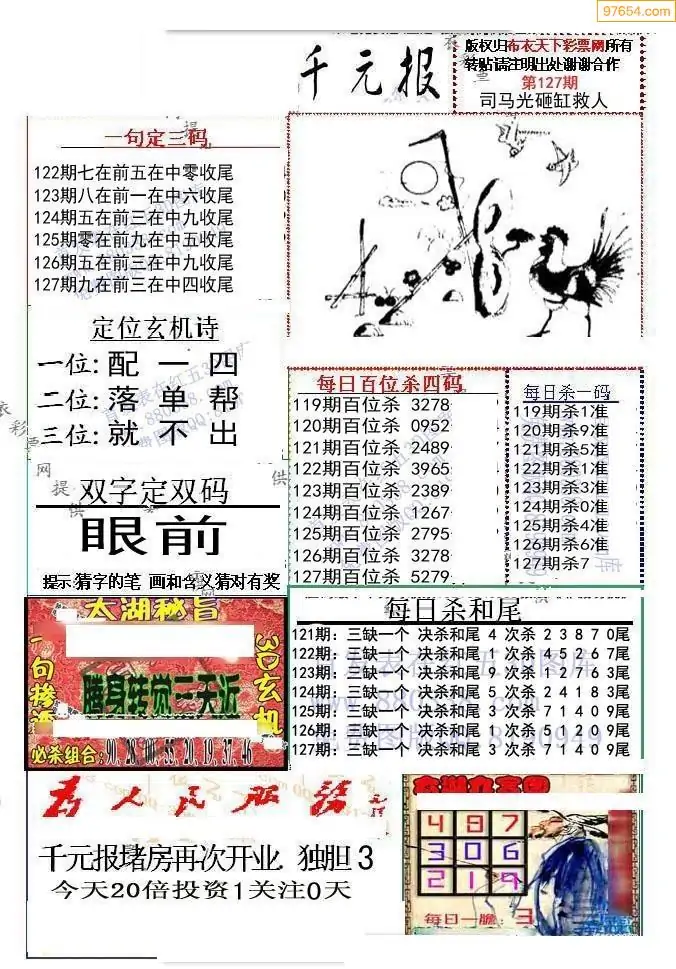 97654.com
千元报
版权归布衣天下彩票网所有
转贴请注明出处谢谢合作
第127期
司马光砸缸救人
一句定三码
122期七在前五在中零收尾
123期八在前一在中六收尾
124期五在前三在中九收尾
125期零在前九在中五收尾
126期五在前三在中九收尾
127期九在前三在中四收尾
定位玄机诗
一位: 配 一 四
二位: 落 单 帮
三位: 就 不 出
双字定双码
眼前
提示:猜字的笔 画和含义猜对有奖
每日百位杀四码
119期百位杀 3278
120期百位杀 0952
121期百位杀 2489
122期百位杀 3965
123期百位杀 2389
124期百位杀 1267
125期百位杀 2795
126期百位杀 3278
127期百位杀 5279
每日杀一码
119期杀1准
120期杀9准
121期杀5准
122期杀1准
123期杀3准
124期杀0准
125期杀4准
126期杀6准
127期杀7
每日杀和尾
121期: 三缺一个 决杀和尾 4 次杀 2 3 8 7 0尾
122期: 三缺一个 决杀和尾 1 次杀 4 5 2 6 7尾
123期: 三缺一个 决杀和尾 1 次杀 0 2 7 6 3尾
124期: 三缺一个 决杀和尾 5 次杀 2 4 1 8 3尾
125期: 三缺一个 决杀和尾 3 次杀 7 1 4 0 9尾
126期: 三缺一个 决杀和尾 1 次杀 5 1 2 0 9尾
127期: 三缺一个 决杀和尾 3 次杀 7 1 4 0 9尾
太湖秘旨
3D玄机
腾身转觉三天近
必杀组合:
28.00.55.20.19.37.46
为人民服务
千元报堵房再次开业 独胆 3
今天20倍投资1关注0天
太湖九宫图
4 9 7
3 0 6
2 1 9
每日一胆: 3